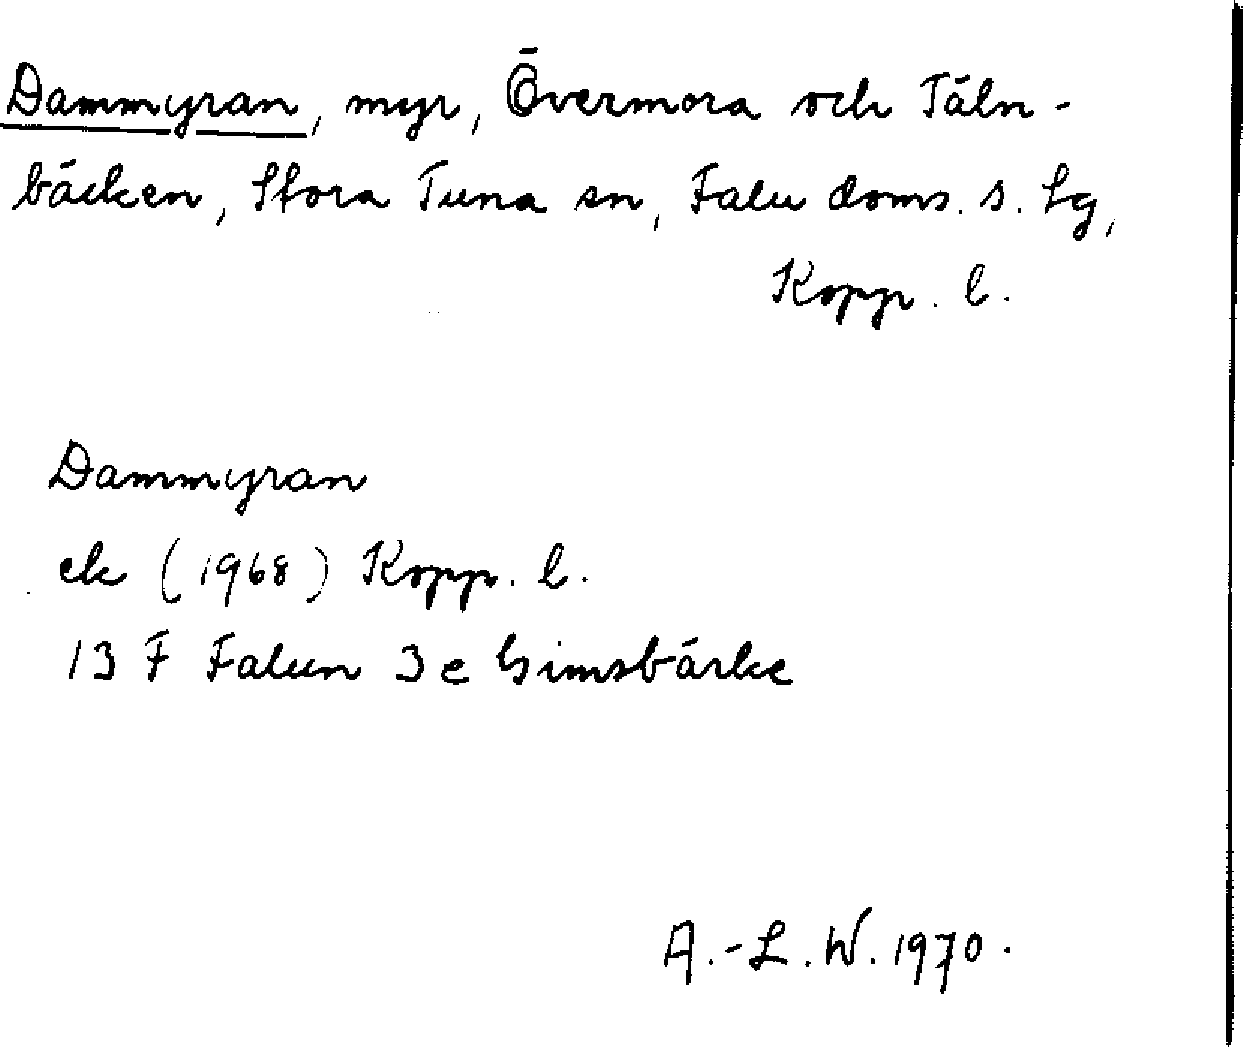 Dammyran, myr, Övermora och Täln-
bäcken, Stora Tuna sn, Falu doms. s. lg,
Kopp. l.
Dammyran
ek (1968) Kopp. l.
13 F Falun 3 e Gimsbärke
A.-L. W. 1970.